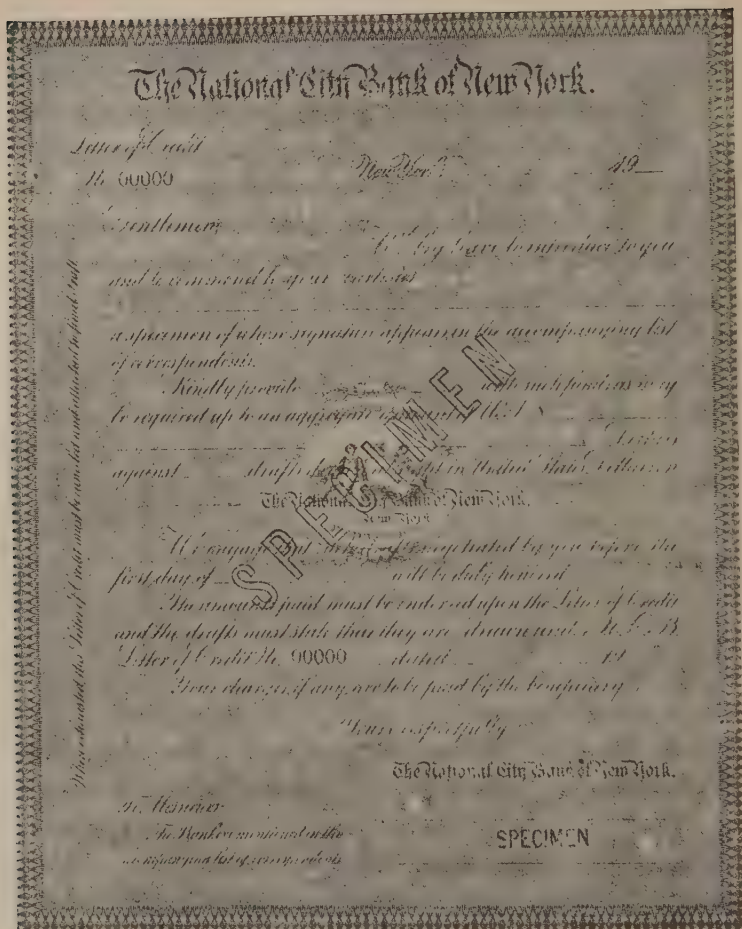 The National City Bank of New York.
Letter of Credit
No 00000 New York 19
Gentlemen
We beg leave to introduce to you
and to commend to your
a specimen of whose signature appears in the accompanying list
of correspondents.
Kindly provide with such funds as may
be required up to an aggregate amount of
against drafts
The National City Bank of New York.
New York
We engage that negotiated by you before the
first day of will be duly honored
The amounts paid must be endorsed upon the Letter of Credit
and the drafts must state that they are drawn under
Letter of Credit No 00000 dated 19
Your charges, if any, are to be paid by the beneficiary
Yours respectfully
The National City Bank of New York.
To Messieurs
The Bankers mentioned in the
accompanying list of correspondents
SPECIMEN
SPECIMEN
When exhausted, this Letter of Credit must be cancelled and attached to final draft.